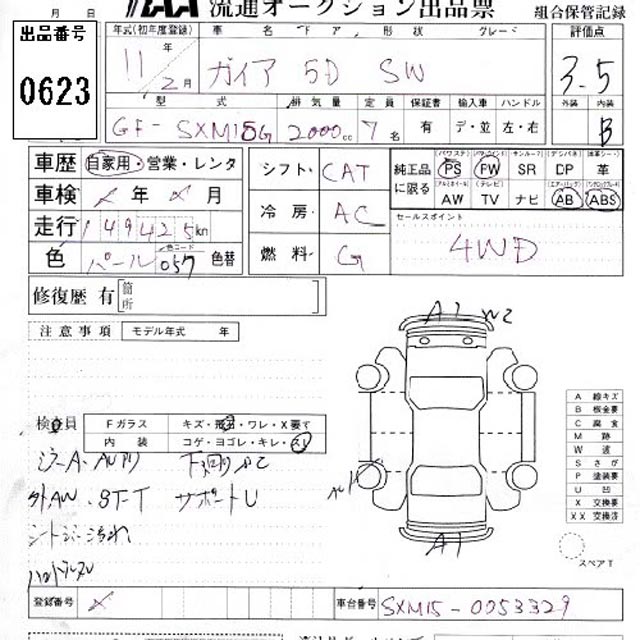 月 日
IAA 流通オークション出品票
組合保管記録
出品番号
0623
年式(初年度登録) 車名 ドア 形状 グレード
11年 2月 ガイア 5D SW
評価点
3.5
外装 内装
B
型式 排気量 定員 保証書 輸入車 ハンドル
GF- SXM15G 2000cc 7名 有 デ・並 左・右
車歴 自家用・営業・レンタ
車検 年 月
走行 149425km
色 パール 色コード 057 色替
シフト CAT
冷房 AC
燃料 G
純正品に限る
PS PW SR DP 革
AW TV ナビ AB ABS
セールスポイント
4WD
修復歴 有 箇所
注意事項 モデル年式 年
A1 W2
検査員
Fガラス キズ・飛石・ワレ・X要す
内装 コゲ・ヨゴレ・キレ・スレ
サポートU
A 線キズ
B 板金要
C 腐食
M 跡
W 波
S さび
P 塗装要
U 凹
X 交換要
XX 交換済
A1
スペアT
登録番号
車台番号 SXM15-0053329